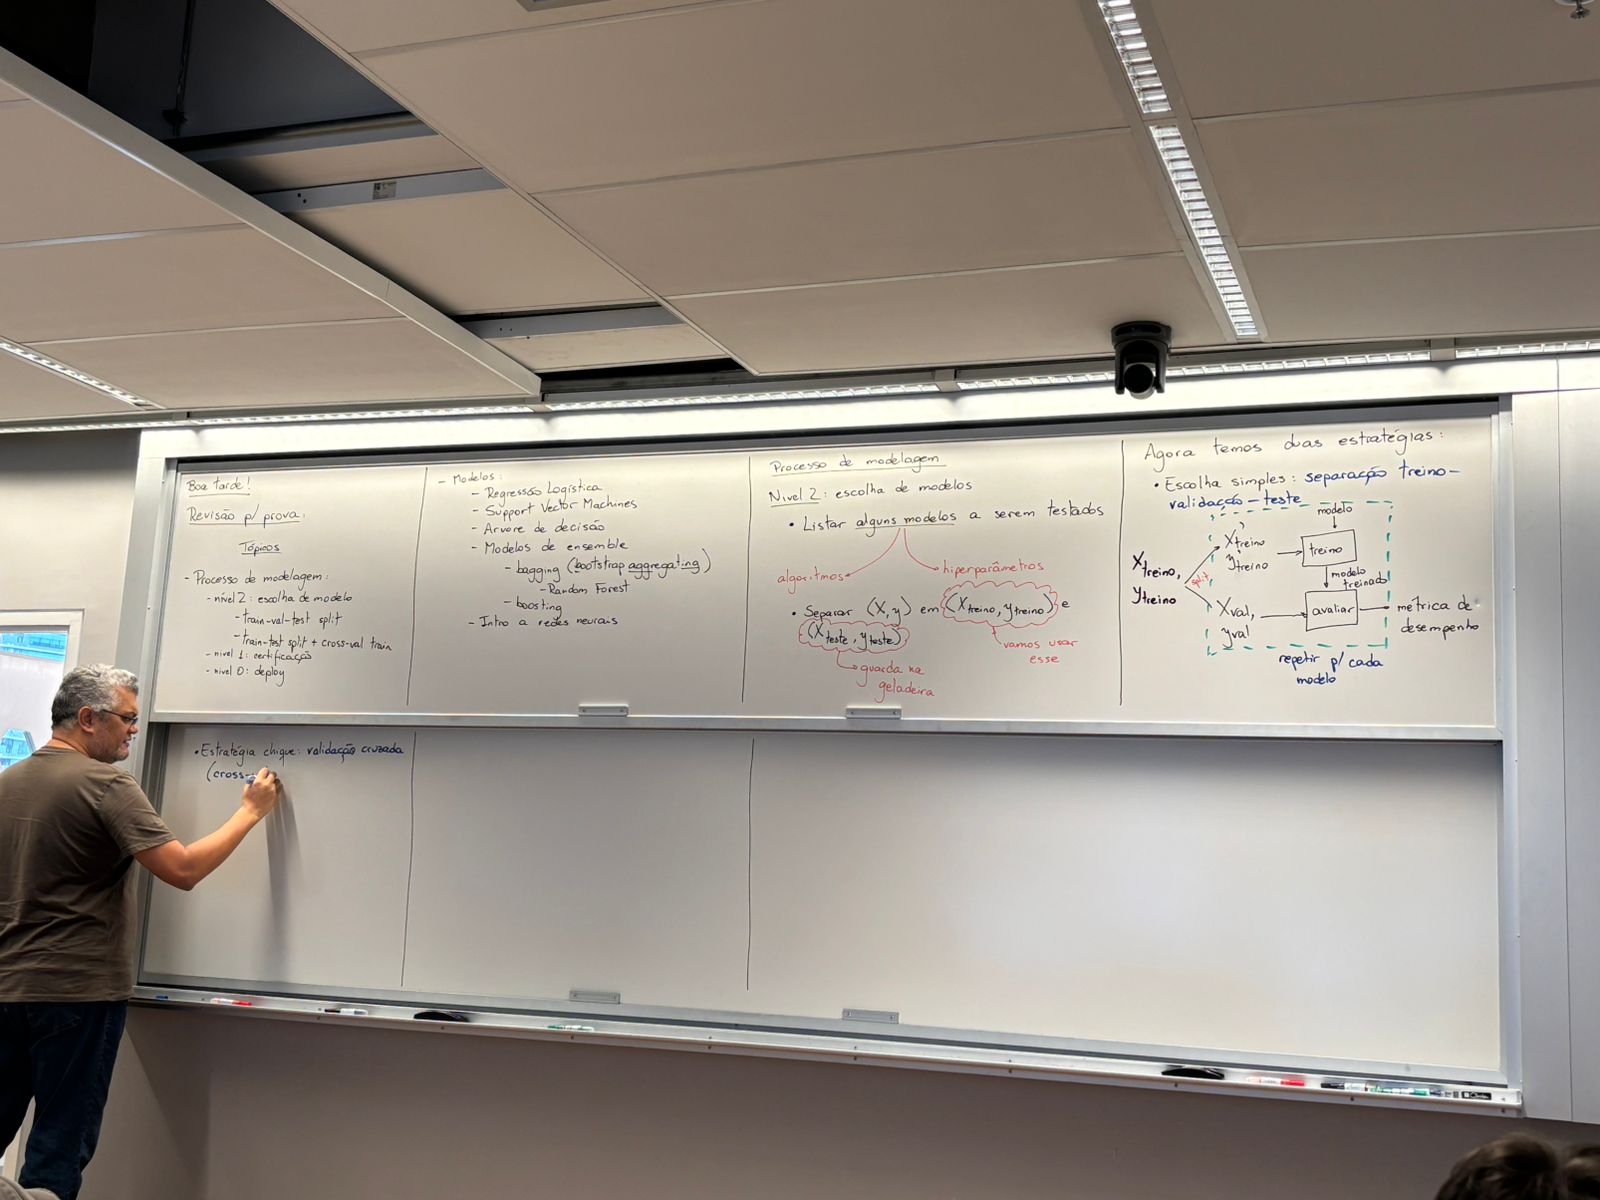 Boa tarde!
Revisão p/ prova.
Tópicos
- Processo de modelagem:
- nível 2: escolha de modelo
- train-val-test split
- train-test split + cross-val train
- nível 1: certificação
- nível 0: deploy
- Modelos:
- Regressão Logística
- Support Vector Machines
- Árvore de decisão
- Modelos de ensemble
- bagging (bootstrap aggregating)
- Random Forest
- boosting
- Intro a redes neurais
Processo de modelagem
Nível 2: escolha de modelos
• Listar alguns modelos a serem testados
algoritmos
hiperparâmetros
• Separar (X, y) em (Xtreino, ytreino) e
(Xteste, yteste)
vamos usar
esse
guarda na
geladeira
Agora temos duas estratégias:
• Escolha simples: separação treino-
validação-teste
modelo
Xtreino,
ytreino
split
Xtreino
ytreino
treino
modelo
treinado
Xval,
yval
avaliar
métrica de
desempenho
repetir p/ cada
modelo
• Estratégia chique: validação cruzada
(cross-